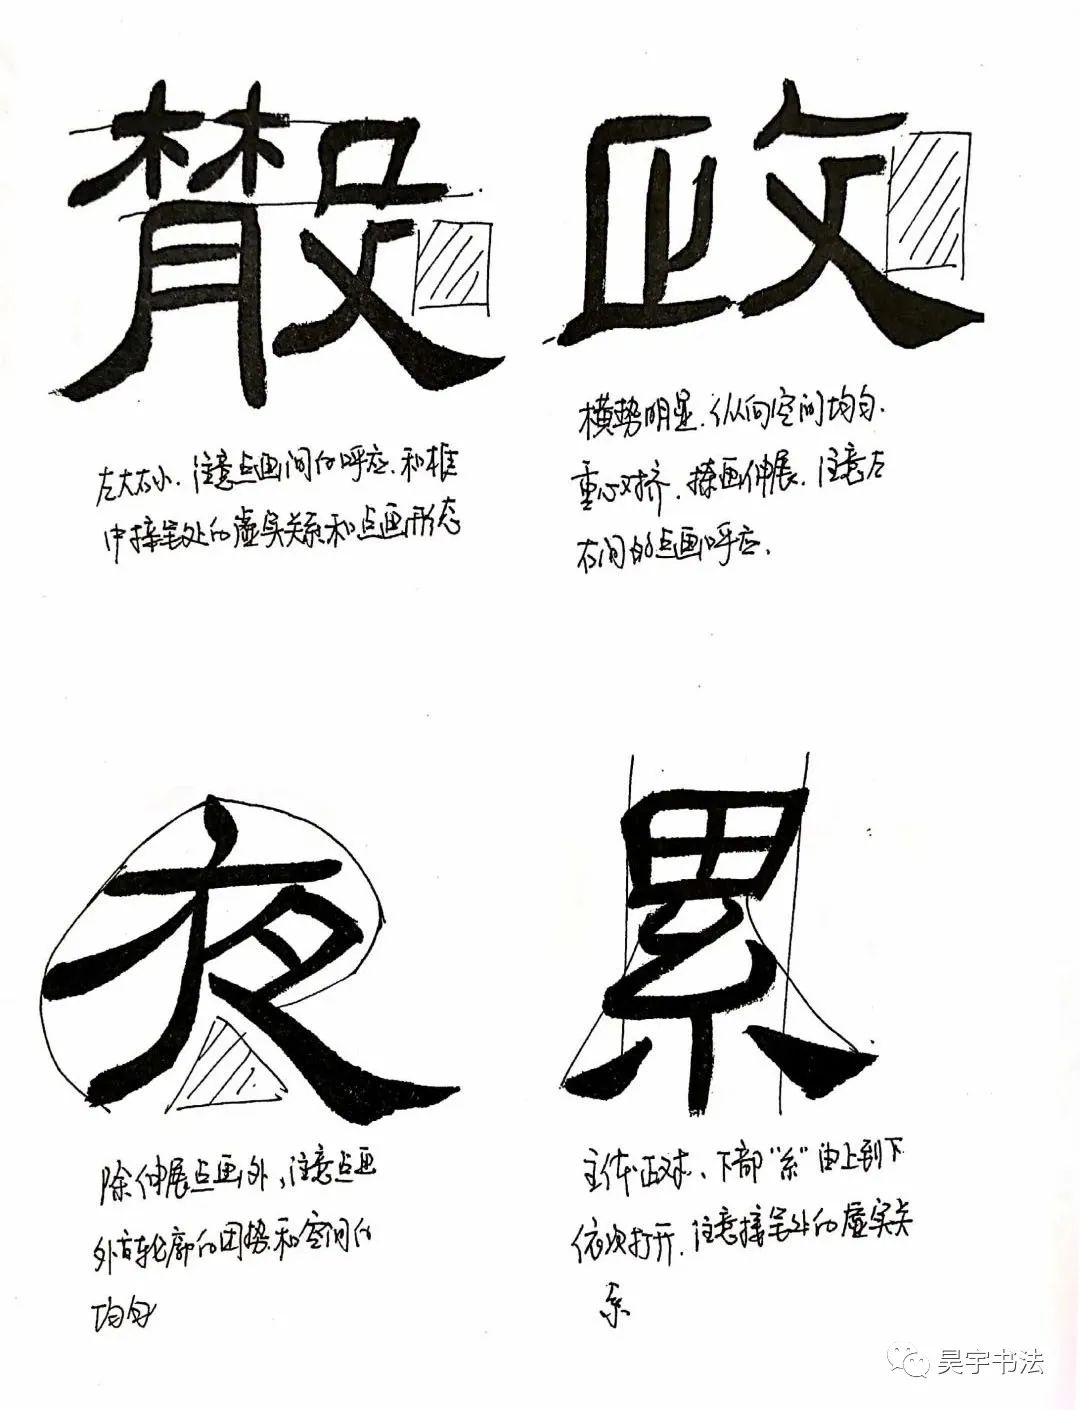 散
政
左大右小、注意点画间的呼应、和框
中接笔处的虚实关系和点画形态
横势明显、纵向空间均匀、
重心对齐、捺画伸展、注意左
右间的点画呼应、
夜
累
除伸展点画外，注意点画
外部轮廓的团势和空间的
均匀
主体正对、下部“糸”由上到下
依次打开、注意接笔处的虚实关
系
昊宇书法